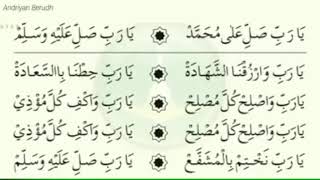 Andriyan Berudh
يَا رَبِّ صَلِّ عَلَى مُحَمَّدْ ۞ يَا رَبِّ صَلِّ عَلَيْهِ وَسَلِّمْ
يَا رَبِّ وَارْزُقْنَا الشَّهَادَةْ ۞ يَا رَبِّ حِطْنَا بِالسَّعَادَةْ
يَا رَبِّ وَاصْلِحْ كُلَّ مُصْلِحْ ۞ يَا رَبِّ وَاكْفِ كُلَّ مُؤْذِيْ
يَا رَبِّ وَاصْلِحْ كُلَّ مُصْلِحْ ۞ يَا رَبِّ وَاكْفِ كُلَّ مُؤْذِيْ
يَا رَبِّ نَخْتِمْ بِالْمُشَفَّعْ ۞ يَا رَبِّ صَلِّ عَلَيْهِ وَسَلِّمْ